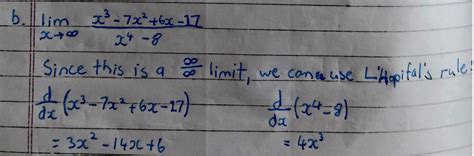 b. lim x→∞ (x³ - 7x² + 6x - 17) / (x⁴ - 8)
Since this is a ∞/∞ limit, we can use L'Hopital's rule:
d/dx (x³ - 7x² + 6x - 17)    d/dx (x⁴ - 8)
= 3x² - 14x + 6    = 4x³